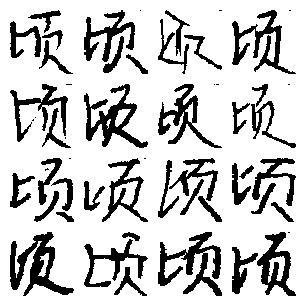 顷顷顷顷
顷顷顷顷
顷顷顷顷
顷顷顷顷